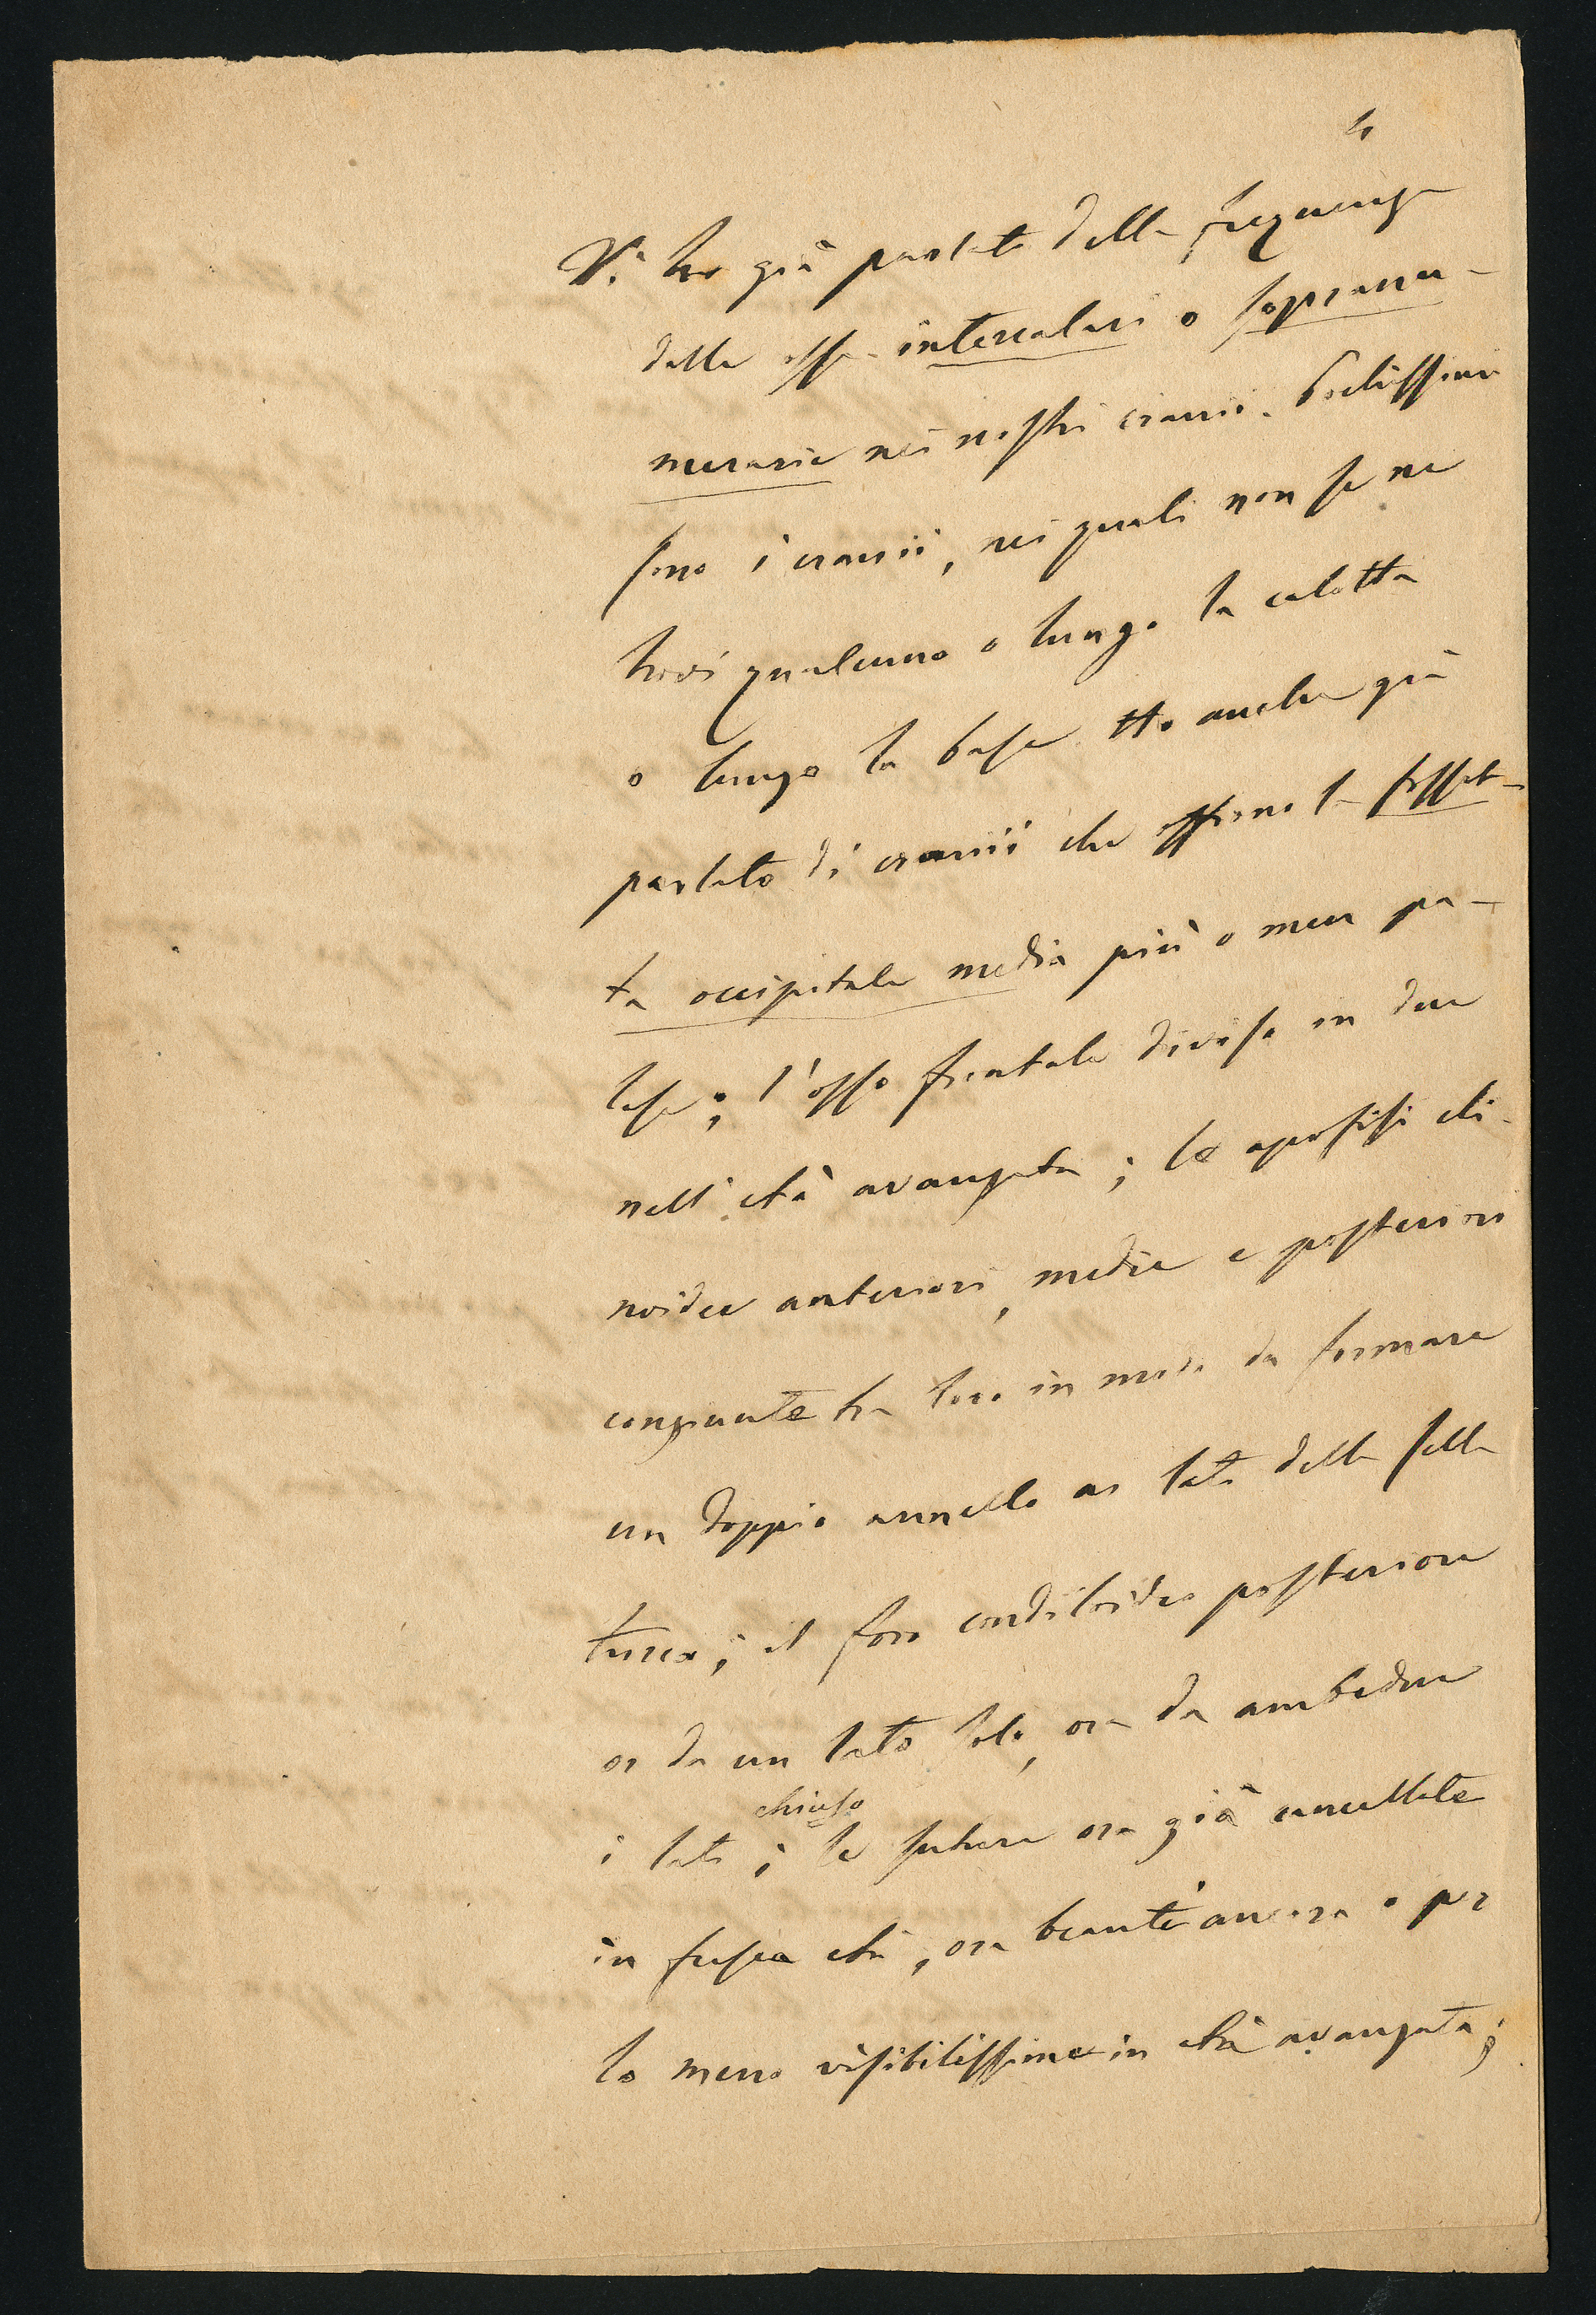 Vi ho già parlato della frequenza
delle ossa intercalari o soprannu-
merarie nei nostri cranii. Pochissimi
sono i cranii, nei quali non se ne
trovi qualcuno o lungo la calotta
o lungo la base. Ho anche già
parlato di cranii che offrono la fosset-
ta occipitale media più o men pa-
lese; l'osso frontale diviso in due
nell'età avanzata; le apofisi cli-
noidee anteriori, medie e posteriori
congiunte tra loro in modo da formare
un doppio annello ai lati della sella
turca; il foro condiloideo posteriore
or da un lato solo, ora da ambedue
chiuso
i lati; le suture ora già cancellate
in fresca età, ora beanti ancora o per
lo meno visibilissime in età avanzata;